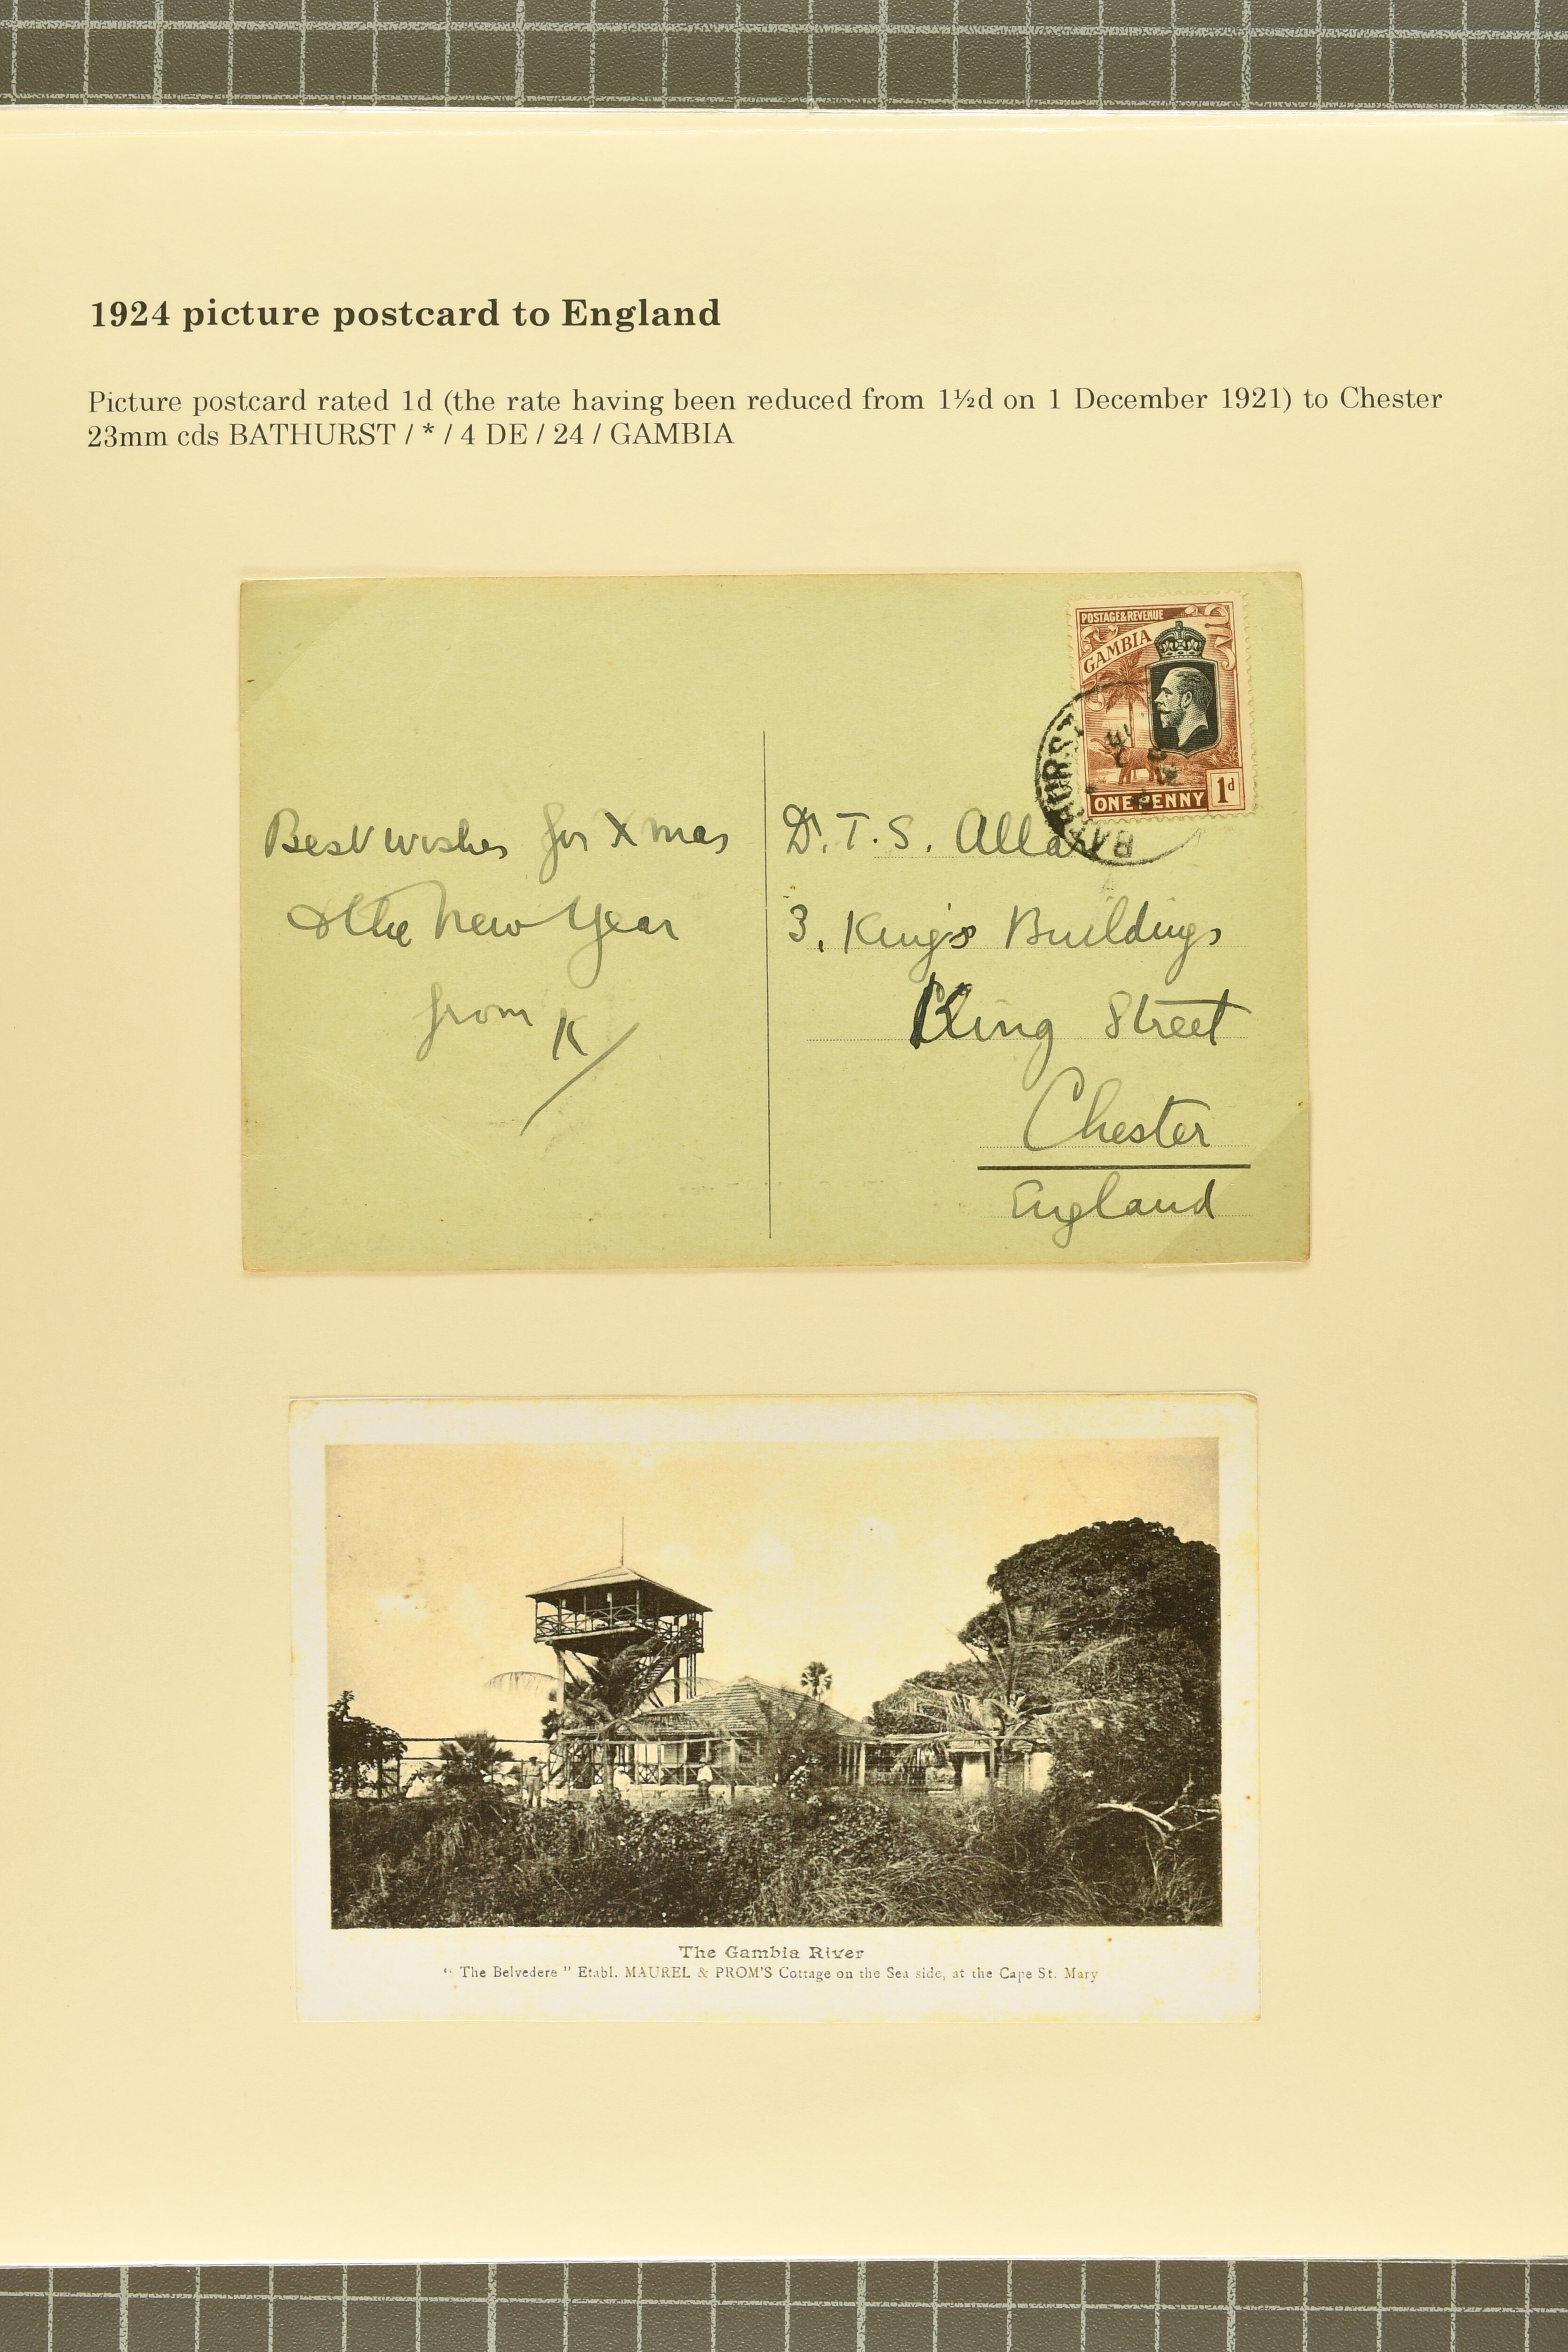 1924 picture postcard to England
Picture postcard rated 1d (the rate having been reduced from 1½d on 1 December 1921) to Chester
23mm cds BATHURST / * / 4 DE / 24 / GAMBIA
POSTAGE & REVENUE
GAMBIA
ONE PENNY 1d
BATHURST
Best wishes for Xmas
& the New Year
from K
Dr. T. S. Allan
3, King's Buildings
King Street
Chester
England
The Gambia River
" The Belvedere " Etabl. MAUREL & PROM'S Cottage on the Sea side, at the Cape St. Mary